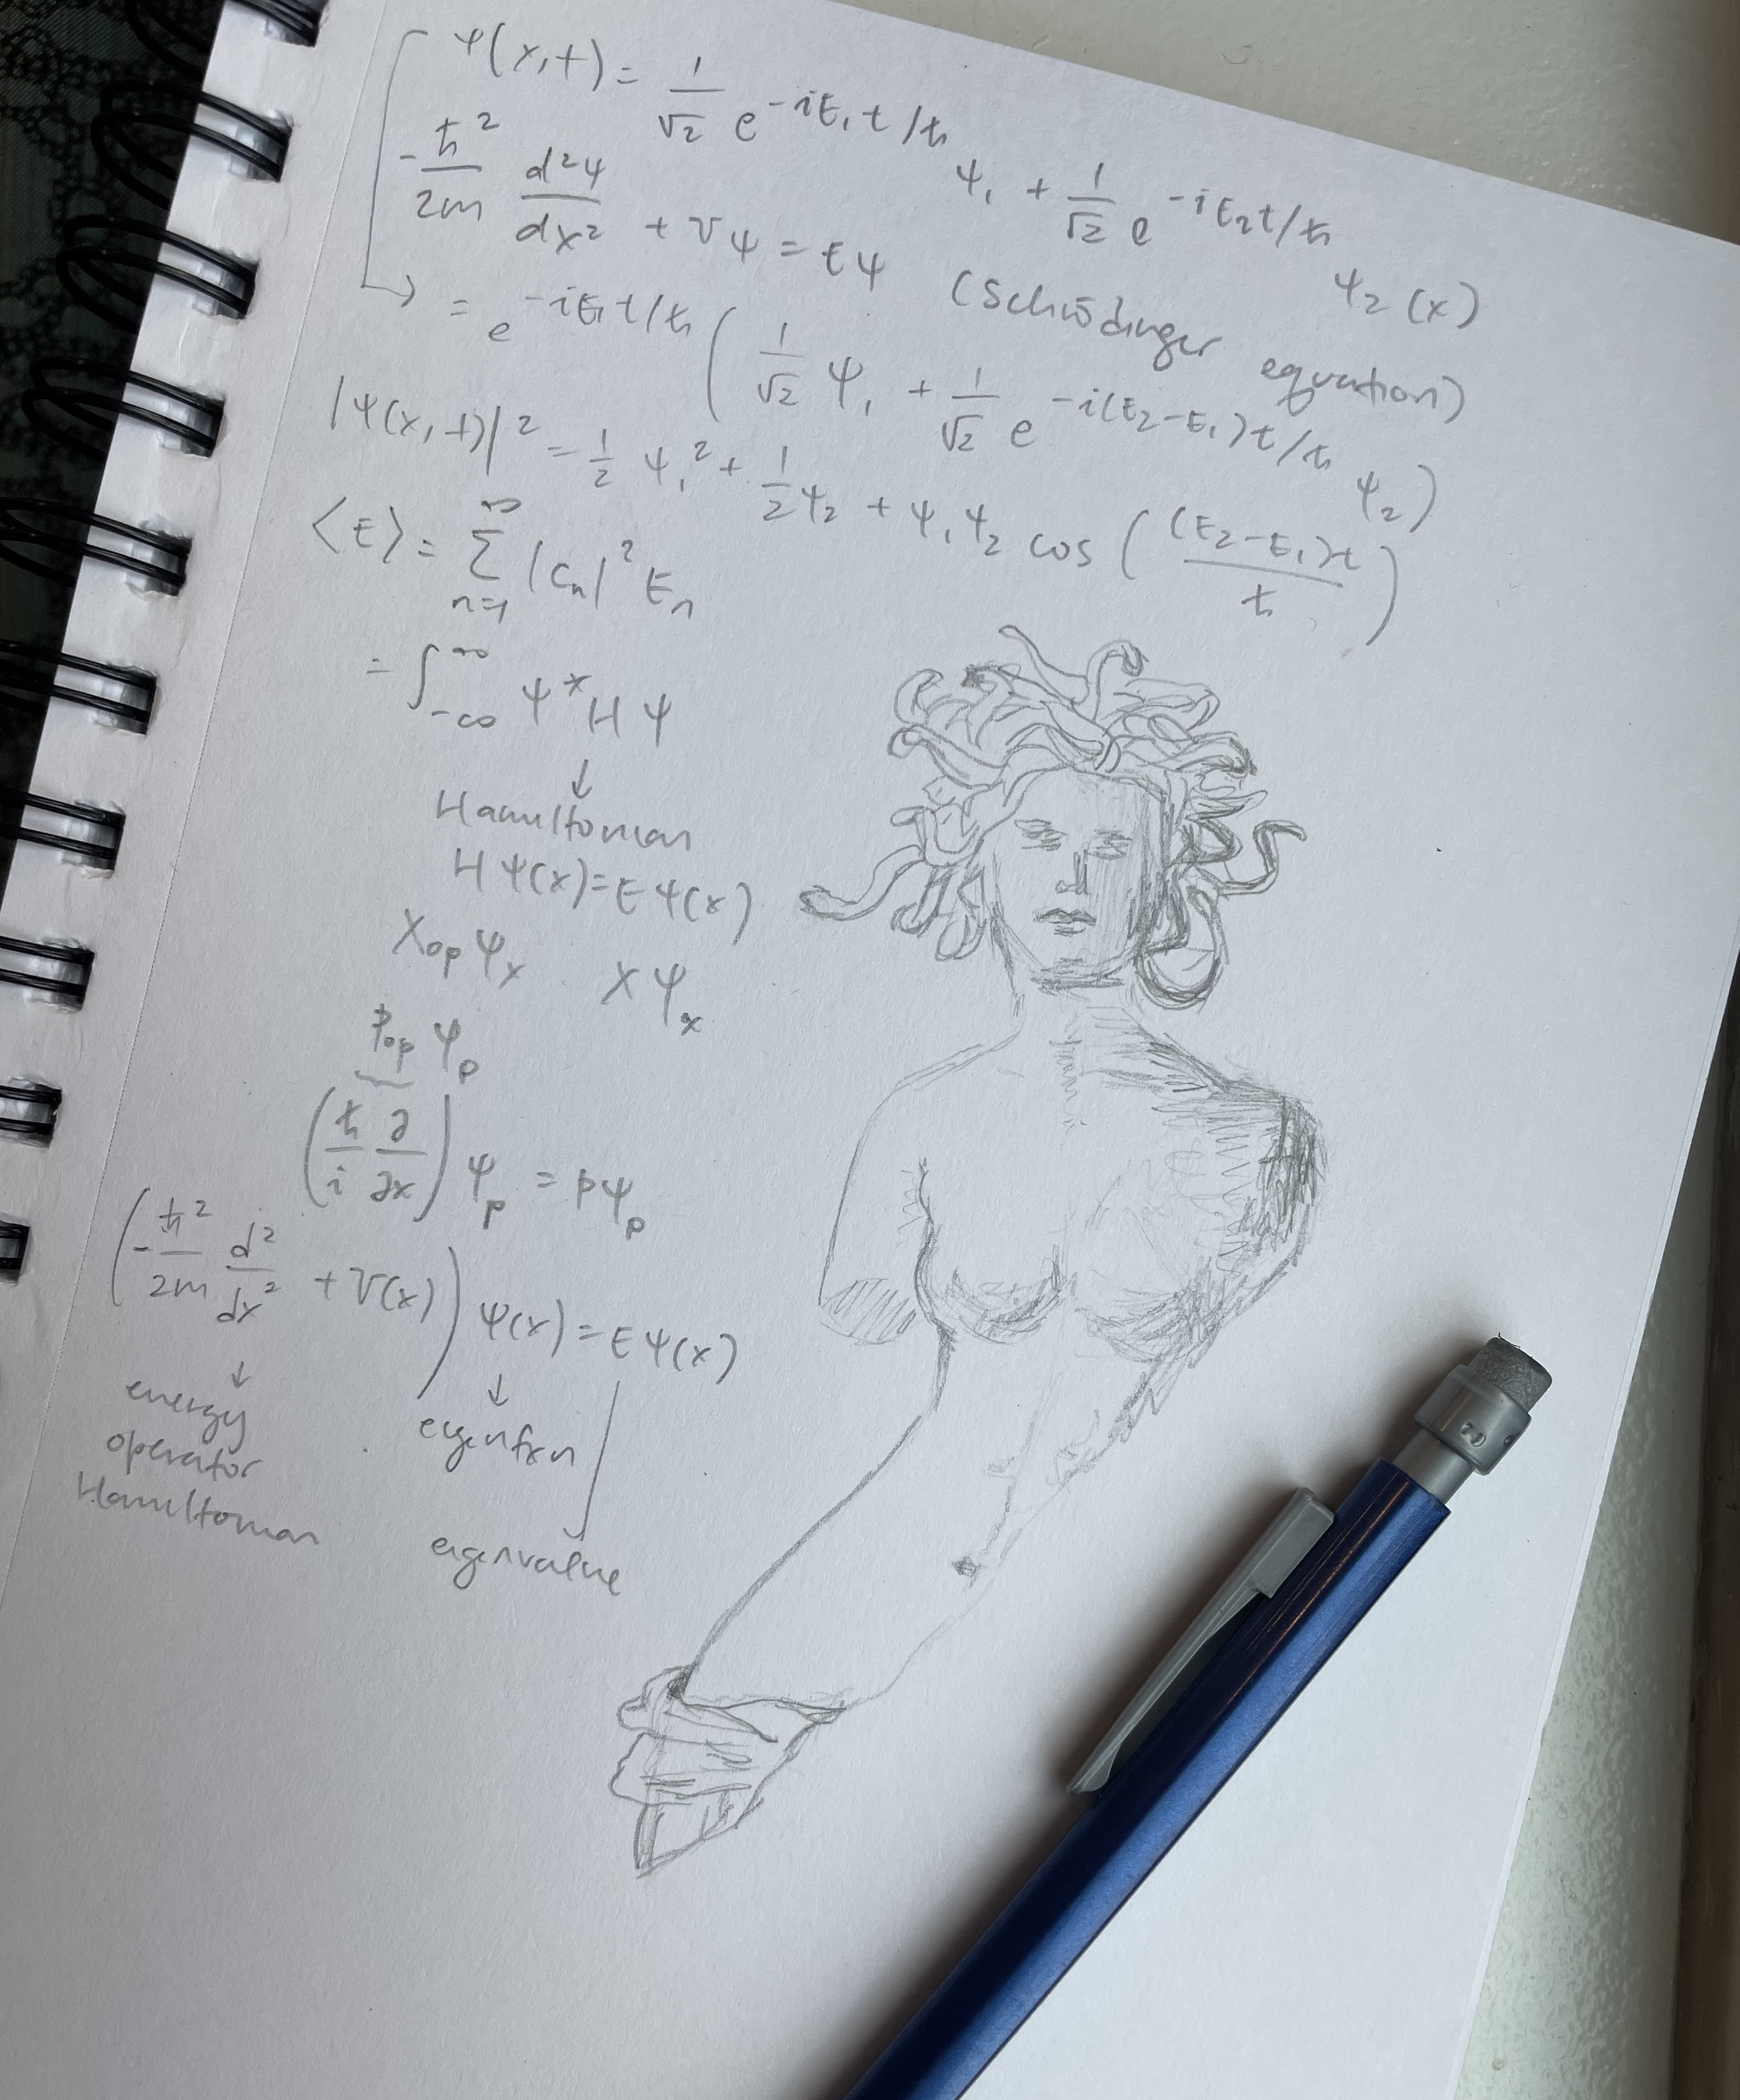 ψ(x,t) = 1/√2 e^(-iE₁t/ħ) ψ₁ + 1/√2 e^(-iE₂t/ħ) ψ₂(x)
-ħ²/2m d²ψ/dx² + Vψ = Eψ (Schrödinger equation)
= e^(-iE₁t/ħ) (1/√2 ψ₁ + 1/√2 e^(-i(E₂-E₁)t/ħ) ψ₂)
|ψ(x,t)|² = 1/2 ψ₁² + 1/2 ψ₂ + ψ₁ψ₂ cos((E₂-E₁)t/ħ)
⟨E⟩ = ∑_(n=1)^∞ |cₙ|² Eₙ
= ∫_(-∞)^∞ ψ*Hψ
↓
Hamiltonian
Hψ(x) = Eψ(x)
X_op ψ_x Xψ_x
P_op ψ_p
(ħ/i ∂/∂x) ψ_p = pψ_p
(-ħ²/2m d²/dx² + V(x)) ψ(x) = Eψ(x)
↓ ↓
energy eigenfxn
operator
Hamiltonian eigenvalue